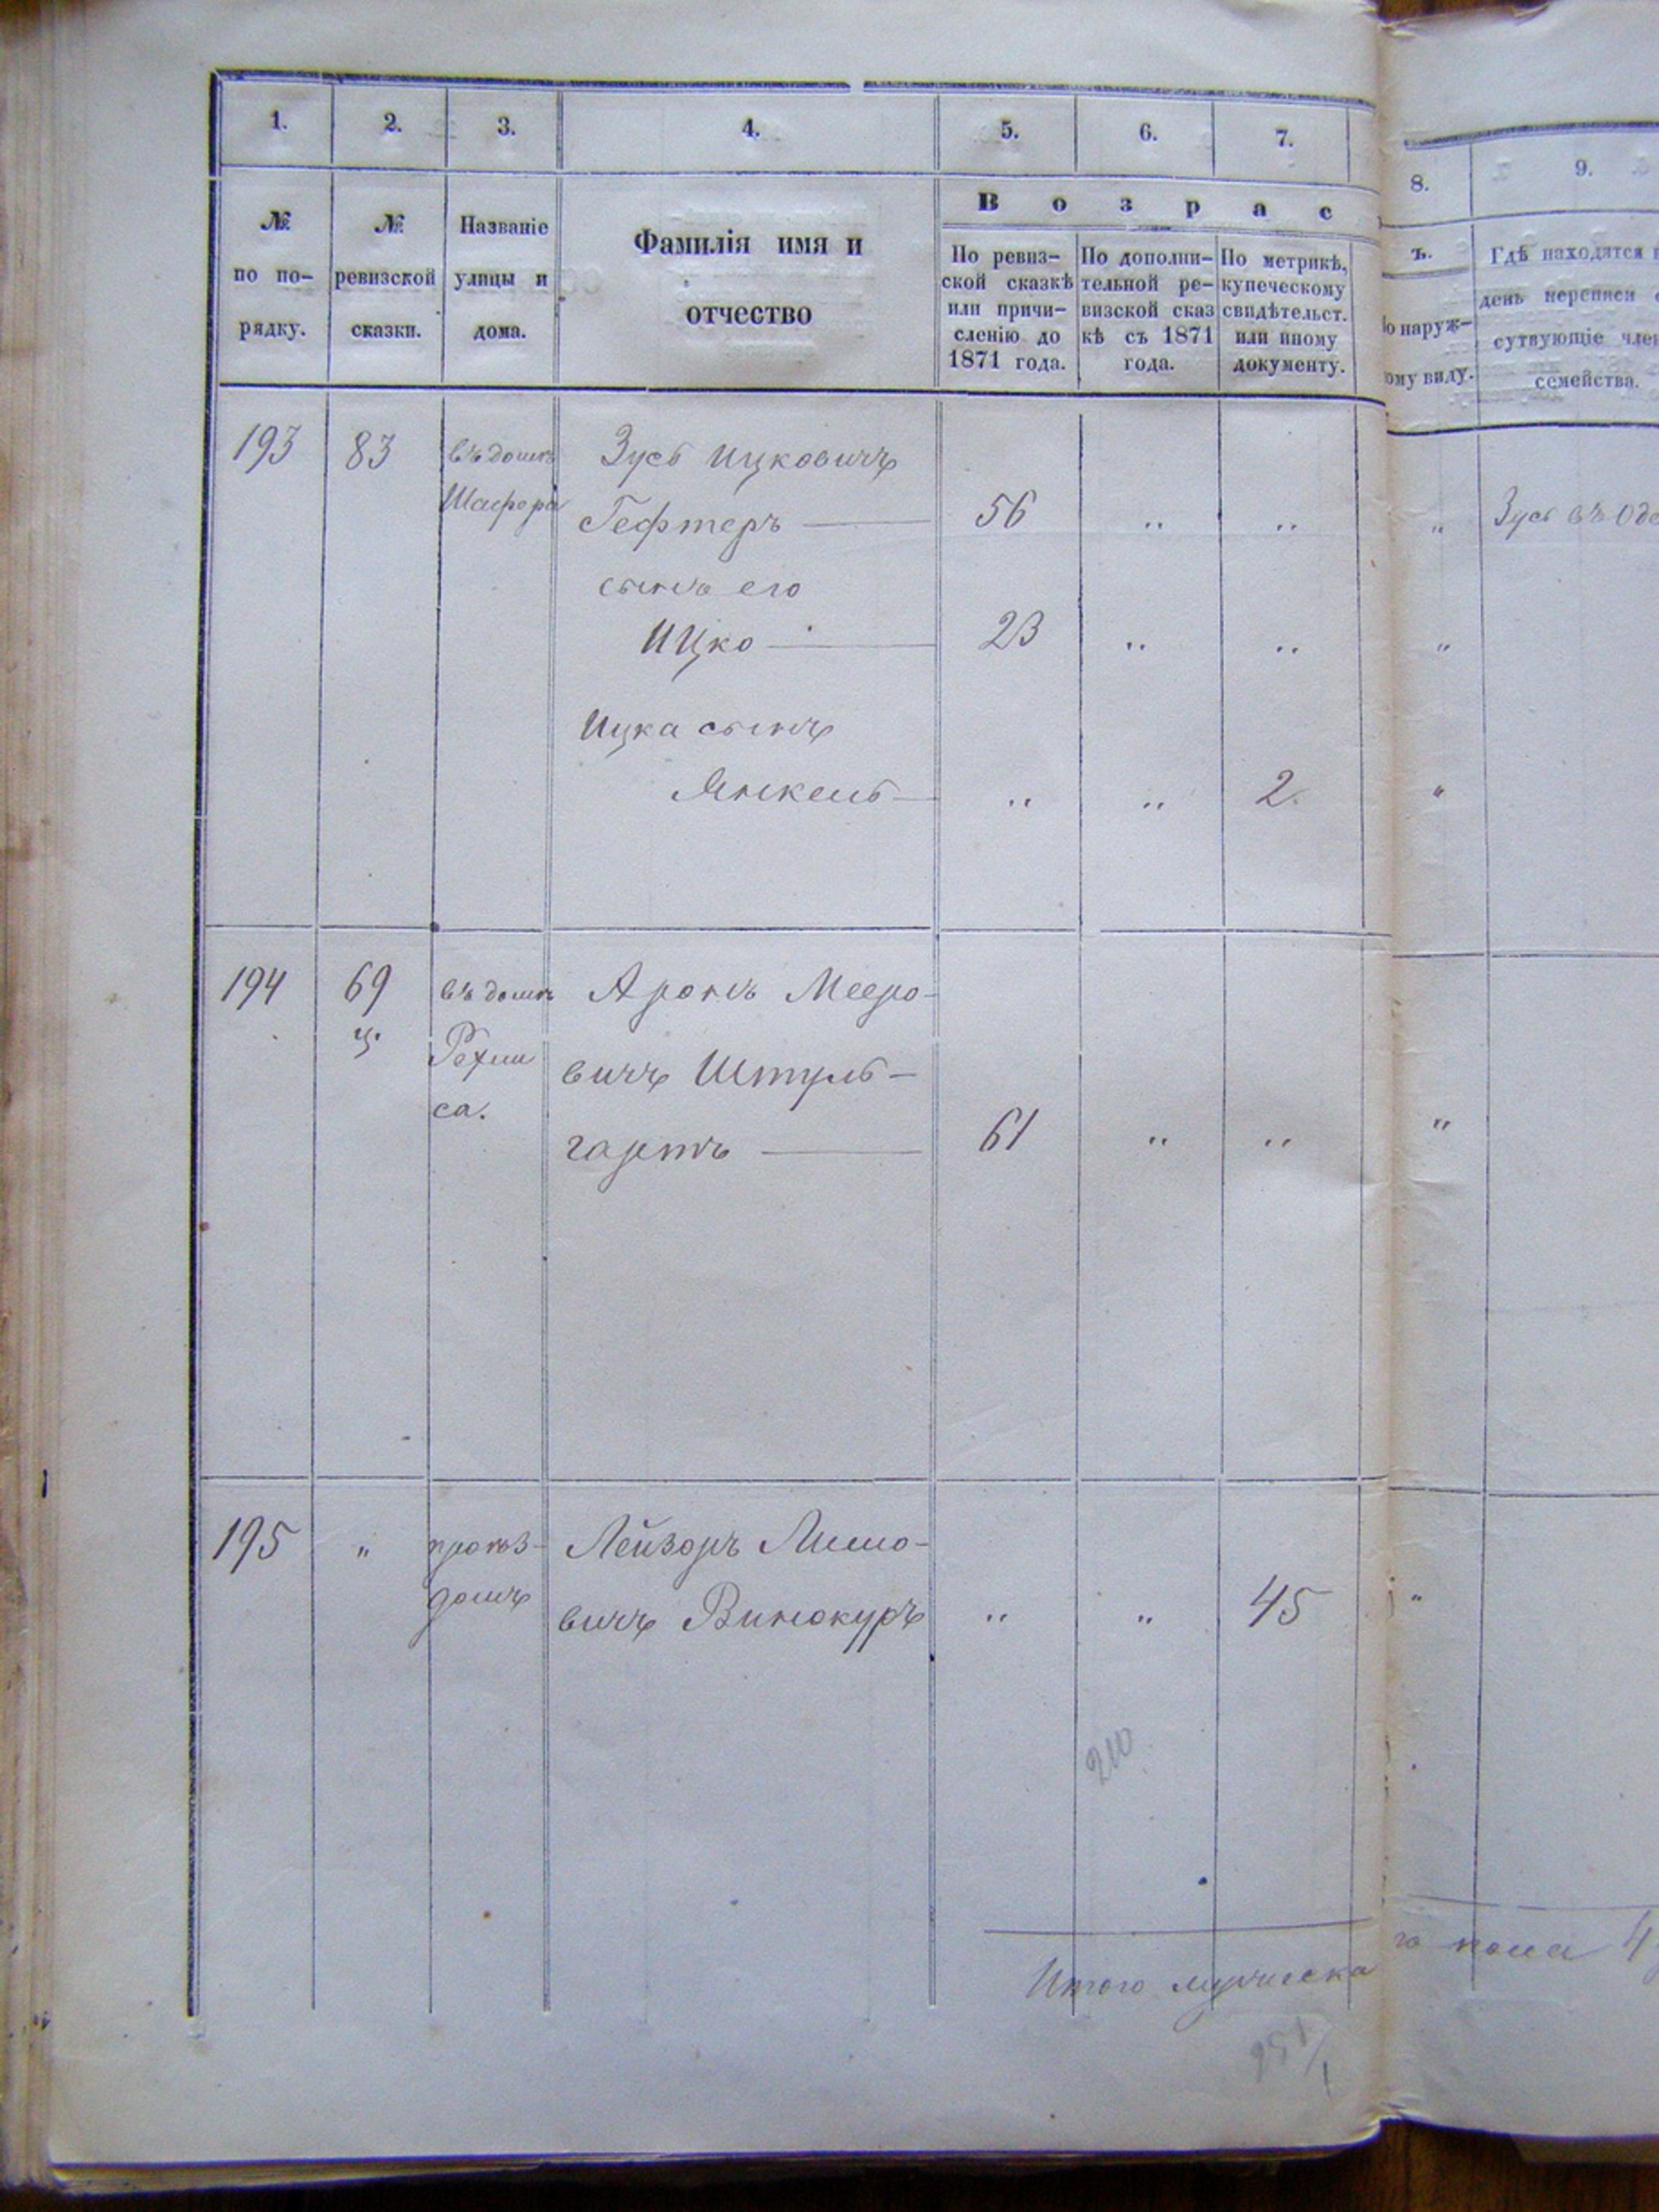 1. 2. 3. 4. 5. 6. 7. 8. 9.
В о з р а с ъ.
№ по по-рядку.
№ ревизской сказки.
Названіе улицы и дома.
Фамилія имя и
отчество
По ревиз-
ской сказкѣ
или причи-
сленію до
1871 года.
По дополни-
тельной ре-
визской сказ
кѣ съ 1871
года.
По метрикѣ,
купеческому
свидѣтельст.
или иному
документу.
о наруж-
ому виду.
Гдѣ находятся
день переписи
сутвующіе
семейства.
193 83 въ домѣ Зусь Ицковичъ
Шафера Гефтеръ — 56 „ „ „ Зусь въ
сынъ его
Ицко — 23 „ „ „
Ицка сынъ
Янкель — „ „ 2. „
194 69 въ домѣ Аронъ Мееро-
вичъ Штуль-
са. гартъ — 61 „ „ „
195 „ проѣз- Лейзоръ
домъ вичъ Винокуръ „ „ 45 „
210
Итого мужеска го пола